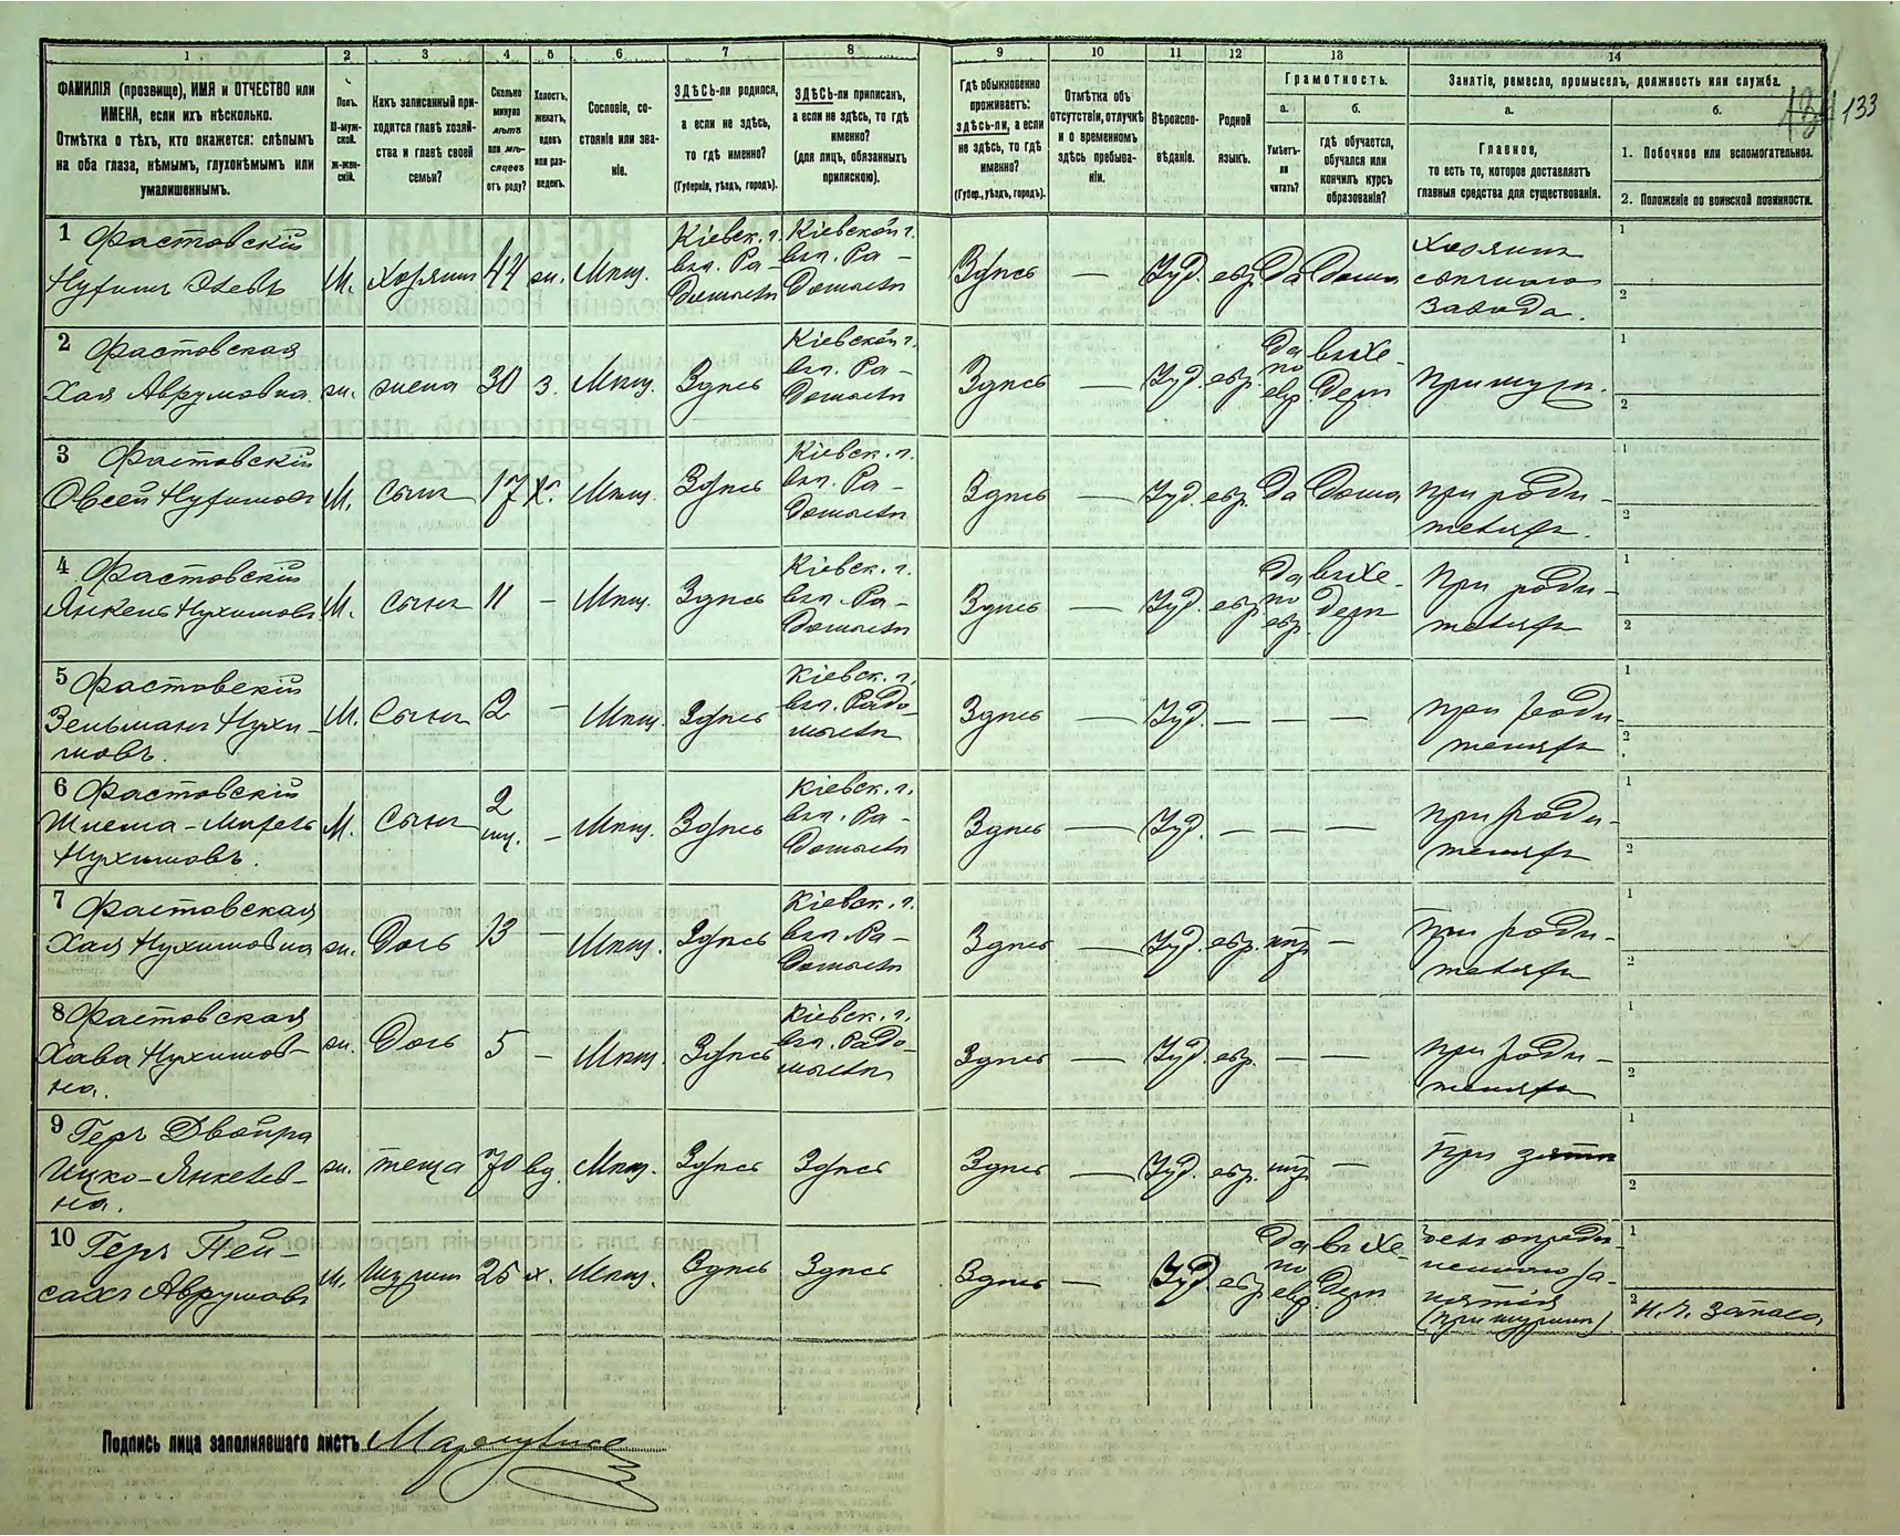 1
2
3
4
5
6
7
8
9
10
11
12
13
14
ФАМИЛІЯ (прозвище), ИМЯ и ОТЧЕСТВО или
ИМЕНА, если ихъ нѣсколько.
Отмѣтка о тѣхъ, кто окажется: слѣпымъ
на оба глаза, нѣмымъ, глухонѣмымъ или
умалишеннымъ.
Полъ.
М-муж-
ской.
ж-жен-
скій.
Какъ записанный при-
ходится главѣ хозяй-
ства и главѣ своей
семьи?
Сколько
минуло
лѣтъ
или мѣ-
сяцевъ
отъ роду?
Холостъ,
женатъ,
вдовъ
или раз-
веденъ.
Сословіе, со-
стояніе или зва-
ніе.
ЗДѢСЬ-ли родился,
а если не здѣсь,
то гдѣ именно?
(Губернія, уѣздъ, городъ).
ЗДѢСЬ-ли приписанъ,
а если не здѣсь, то гдѣ
именно?
(для лицъ, обязанныхъ
припискою).
Гдѣ обыкновенно
проживаетъ:
здѣсь-ли, а если
не здѣсь, то гдѣ
именно?
(Губер., уѣздъ, городъ).
Отмѣтка объ
отсутствіи, отлучкѣ
и о временномъ
здѣсь пребыва-
ніи.
Вѣроиспо-
вѣданіе.
Родной
языкъ.
Грамотность.
а.
б.
Умѣетъ-
ли
читать?
гдѣ обучается,
обучался или
кончилъ курсъ
образованія?
Занятіе, ремесло, промыселъ, должность или служба.
а.
б.
Главное,
то есть то, которое доставляетъ
главныя средства для существованія.
1. Побочное или вспомогательное.
2. Положеніе по воинской повинности.
133
1 Фастовскій
М. Хозяинъ 44 ж. Мѣщ.
Кіевск. г.
Ра-
домыслѣ
Кіевской г.
Ра-
домыслѣ
Здѣсь — Іуд. евр. Да Дома
Хозяинъ
завода.
1
2
2 Фастовская
Хая Аврумовна ж. жена 30 з. Мѣщ. Здѣсь
Кіевской г.
Ра-
домыслѣ
Здѣсь — Іуд. евр.
Да
по
евр.
въ хе-
дерѣ
При мужѣ.
1
2
3 Фастовскій
Овсей Нухимовъ М. Сынъ 17 х. Мѣщ. Здѣсь
Кіевск. г.
Ра-
домыслѣ
Здѣсь — Іуд. евр. Да Дома
При роди-
теляхъ.
1
2
4 Фастовскій
Янкель Нухимовъ М. Сынъ 11 — Мѣщ. Здѣсь
Кіевск. г.
Ра-
домыслѣ
Здѣсь — Іуд. евр.
Да
по
евр.
въ хе-
дерѣ
При роди-
теляхъ
1
2
5 Фастовскій
Зельманъ Нухи-
мовъ.
М. Сынъ 2 — Мѣщ. Здѣсь
Кіевск. г.
Радо-
мыслѣ
Здѣсь — Іуд. — — —
При роди-
теляхъ
1
2
6 Фастовскій
Нухимовъ.
М. Сынъ 2 — Мѣщ. Здѣсь
Кіевск. г.
Ра-
домыслѣ
Здѣсь — Іуд. — — —
При роди-
теляхъ
1
2
7 Фастовская
Хая Нухимовна ж. Дочь 13 — Мѣщ. Здѣсь
Кіевск. г.
Ра-
домыслѣ
Здѣсь — Іуд. евр. нѣтъ —
При роди-
теляхъ
1
2
8 Фастовская
Хава Нухимов-
на.
ж. Дочь 5 — Мѣщ. Здѣсь
Кіевск. г.
Радо-
мыслѣ
Здѣсь — Іуд. евр. — —
При роди-
теляхъ
1
2
9 Геръ Двойра
Ицко-Янкелев-
на.
ж. теща 70 вд. Мѣщ. Здѣсь Здѣсь Здѣсь — Іуд. евр. нѣтъ — При зятѣ
1
2
10 Геръ Пей-
сахъ Аврумовъ М. Шуринъ 25 х. Мѣщ. Здѣсь Здѣсь Здѣсь — Іуд. евр.
Да
по
евр.
въ хе-
дерѣ
Безъ опредѣ-
леннаго за-
нятія
(при шуринѣ)
1
2
запаса
Подпись лица заполнявшаго листъ